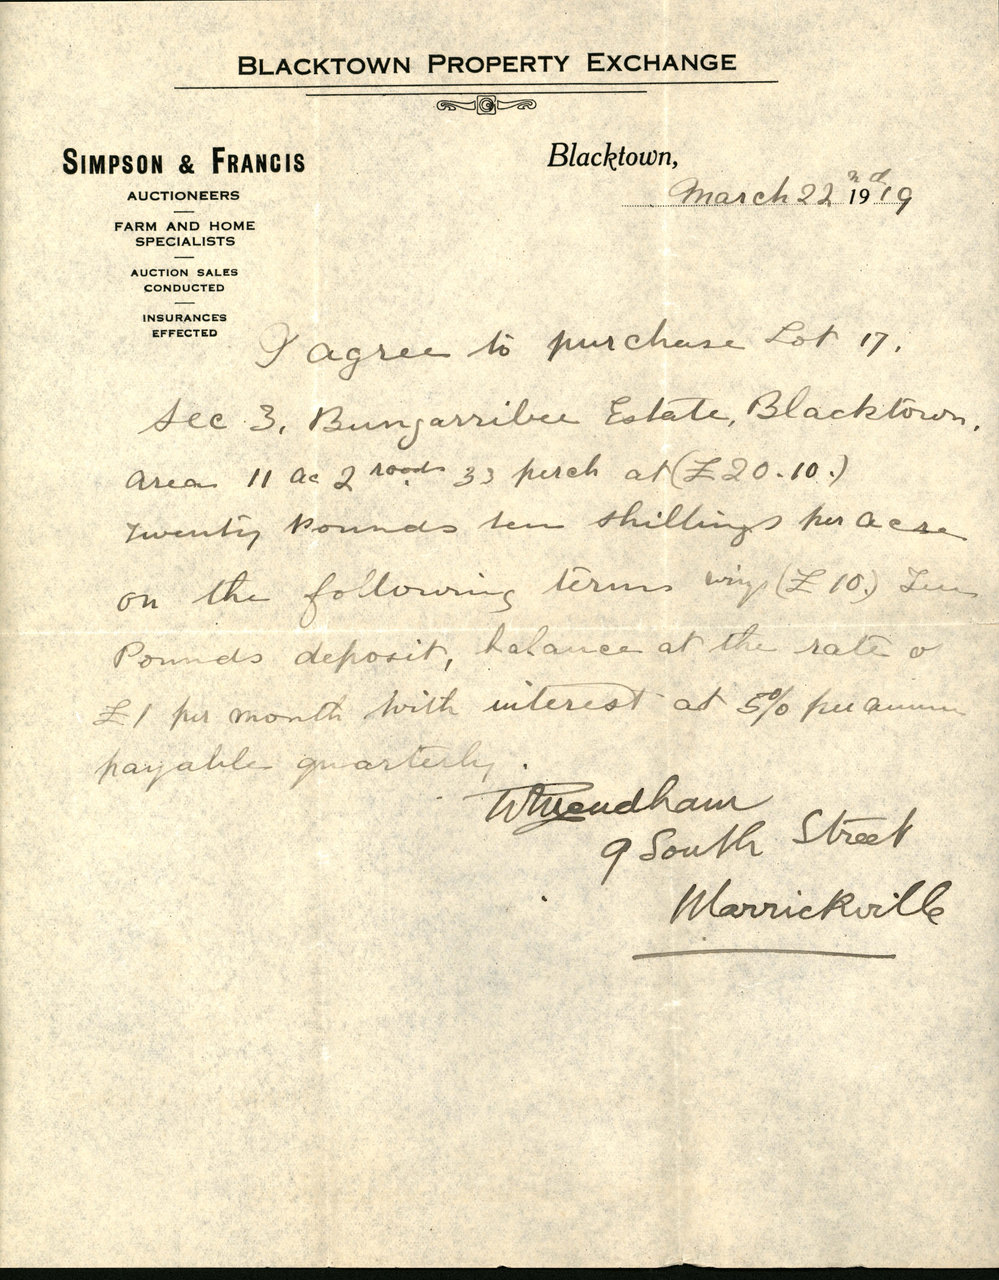 BLACKTOWN PROPERTY EXCHANGE
SIMPSON & FRANCIS
AUCTIONEERS
FARM AND HOME
SPECIALISTS
AUCTION SALES
CONDUCTED
INSURANCES
EFFECTED
Blacktown,
March 22nd 1919
I agree to purchase Lot 17,
Sec 3, Bungarribee Estate, Blacktown,
Area 11 ac 2 roods 33 perch at (£20.10.)
Twenty Pounds ten shillings per acre
on the following terms (£10.) Ten
Pounds deposit, balance at the rate o
£1 per month with interest at 5% per annum
payable quarterly.
9 South Street
Marrickville